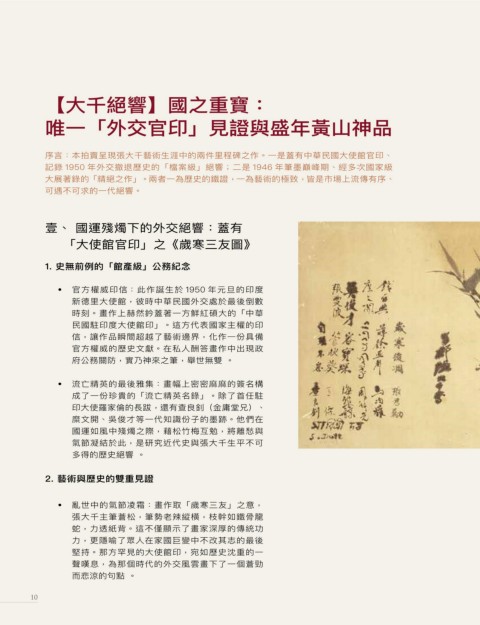 【大千絕響】國之重寶：
唯一「外交官印」見證與盛年黃山神品
序言：本拍賣呈現張大千藝術生涯中的兩件里程碑之作。一是蓋有中華民國大使館官印、
記錄 1950 年外交撤退歷史的「檔案級」絕響；二是 1946 年筆墨巔峰期、經多次國家級
大展著錄的「精絕之作」。兩者一為歷史的鐵證，一為藝術的極致，皆是市場上流傳有序、
可遇不可求的一代絕響。
壹、 國運殘燭下的外交絕響：蓋有
「大使館官印」之《歲寒三友圖》
1. 史無前例的「館產級」公務紀念
• 官方權威印信：此作誕生於 1950 年元旦的印度
新德里大使館，彼時中華民國外交處於最後倒數
時刻。畫作上赫然鈐蓋著一方鮮紅碩大的「中華
民國駐印度大使館印」。這方代表國家主權的印
信，讓作品瞬間超越了藝術邊界，化作一份具備
官方權威的歷史文獻。在私人酬答畫作中出現政
府公務關防，實乃神來之筆，舉世無雙 。
• 流亡精英的最後雅集：畫幅上密密麻麻的簽名構
成了一份珍貴的「流亡精英名錄」。除了首任駐
印大使羅家倫的長跋，還有查良釗（金庸堂兄）、
糜文開、吳俊才等一代知識份子的墨跡。他們在
國運如風中殘燭之際，藉松竹梅互勉，將離愁與
氣節凝結於此，是研究近代史與張大千生平不可
多得的歷史絕響 。
2. 藝術與歷史的雙重見證
• 亂世中的氣節凌霜：畫作取「歲寒三友」之意，
張大千主筆蒼松，筆勢老辣縱橫，枝幹如鐵骨龍
蛇，力透紙背。這不僅顯示了畫家深厚的傳統功
力，更隱喻了眾人在家國巨變中不改其志的最後
堅持。那方罕見的大使館印，宛如歷史沈重的一
聲嘆息，為那個時代的外交風雲畫下了一個蒼勁
而悲涼的句點 。
歲寒後凋
10